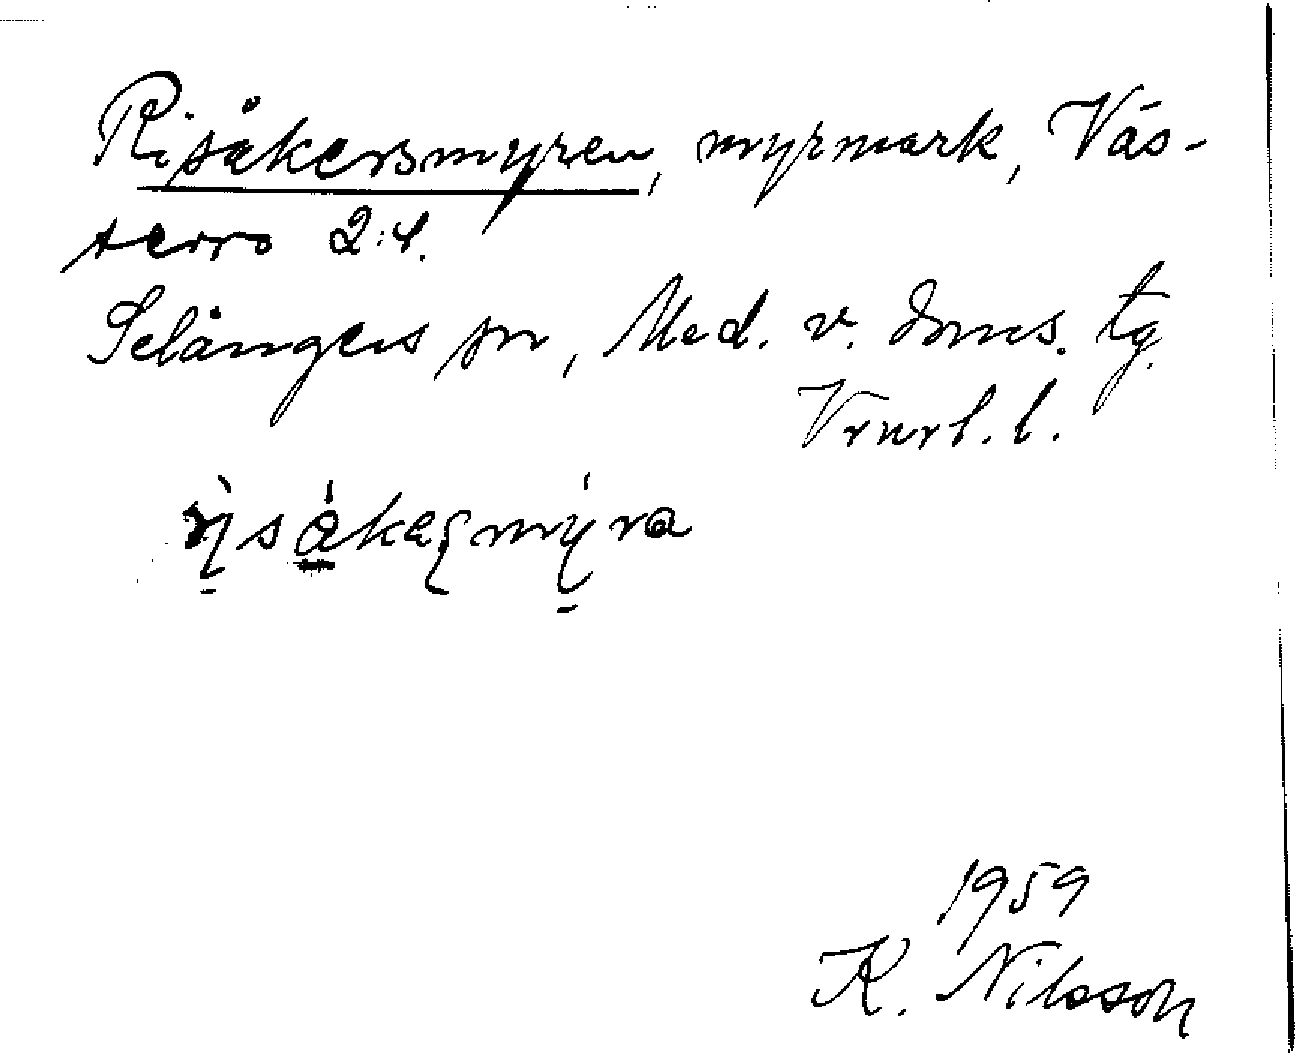 Risåkersmyren, myrmark, Väs-
terro 2:4.
Selångers sn, Med. v. doms. tg.
Vrnrl. l.
1959
K. Nilsson